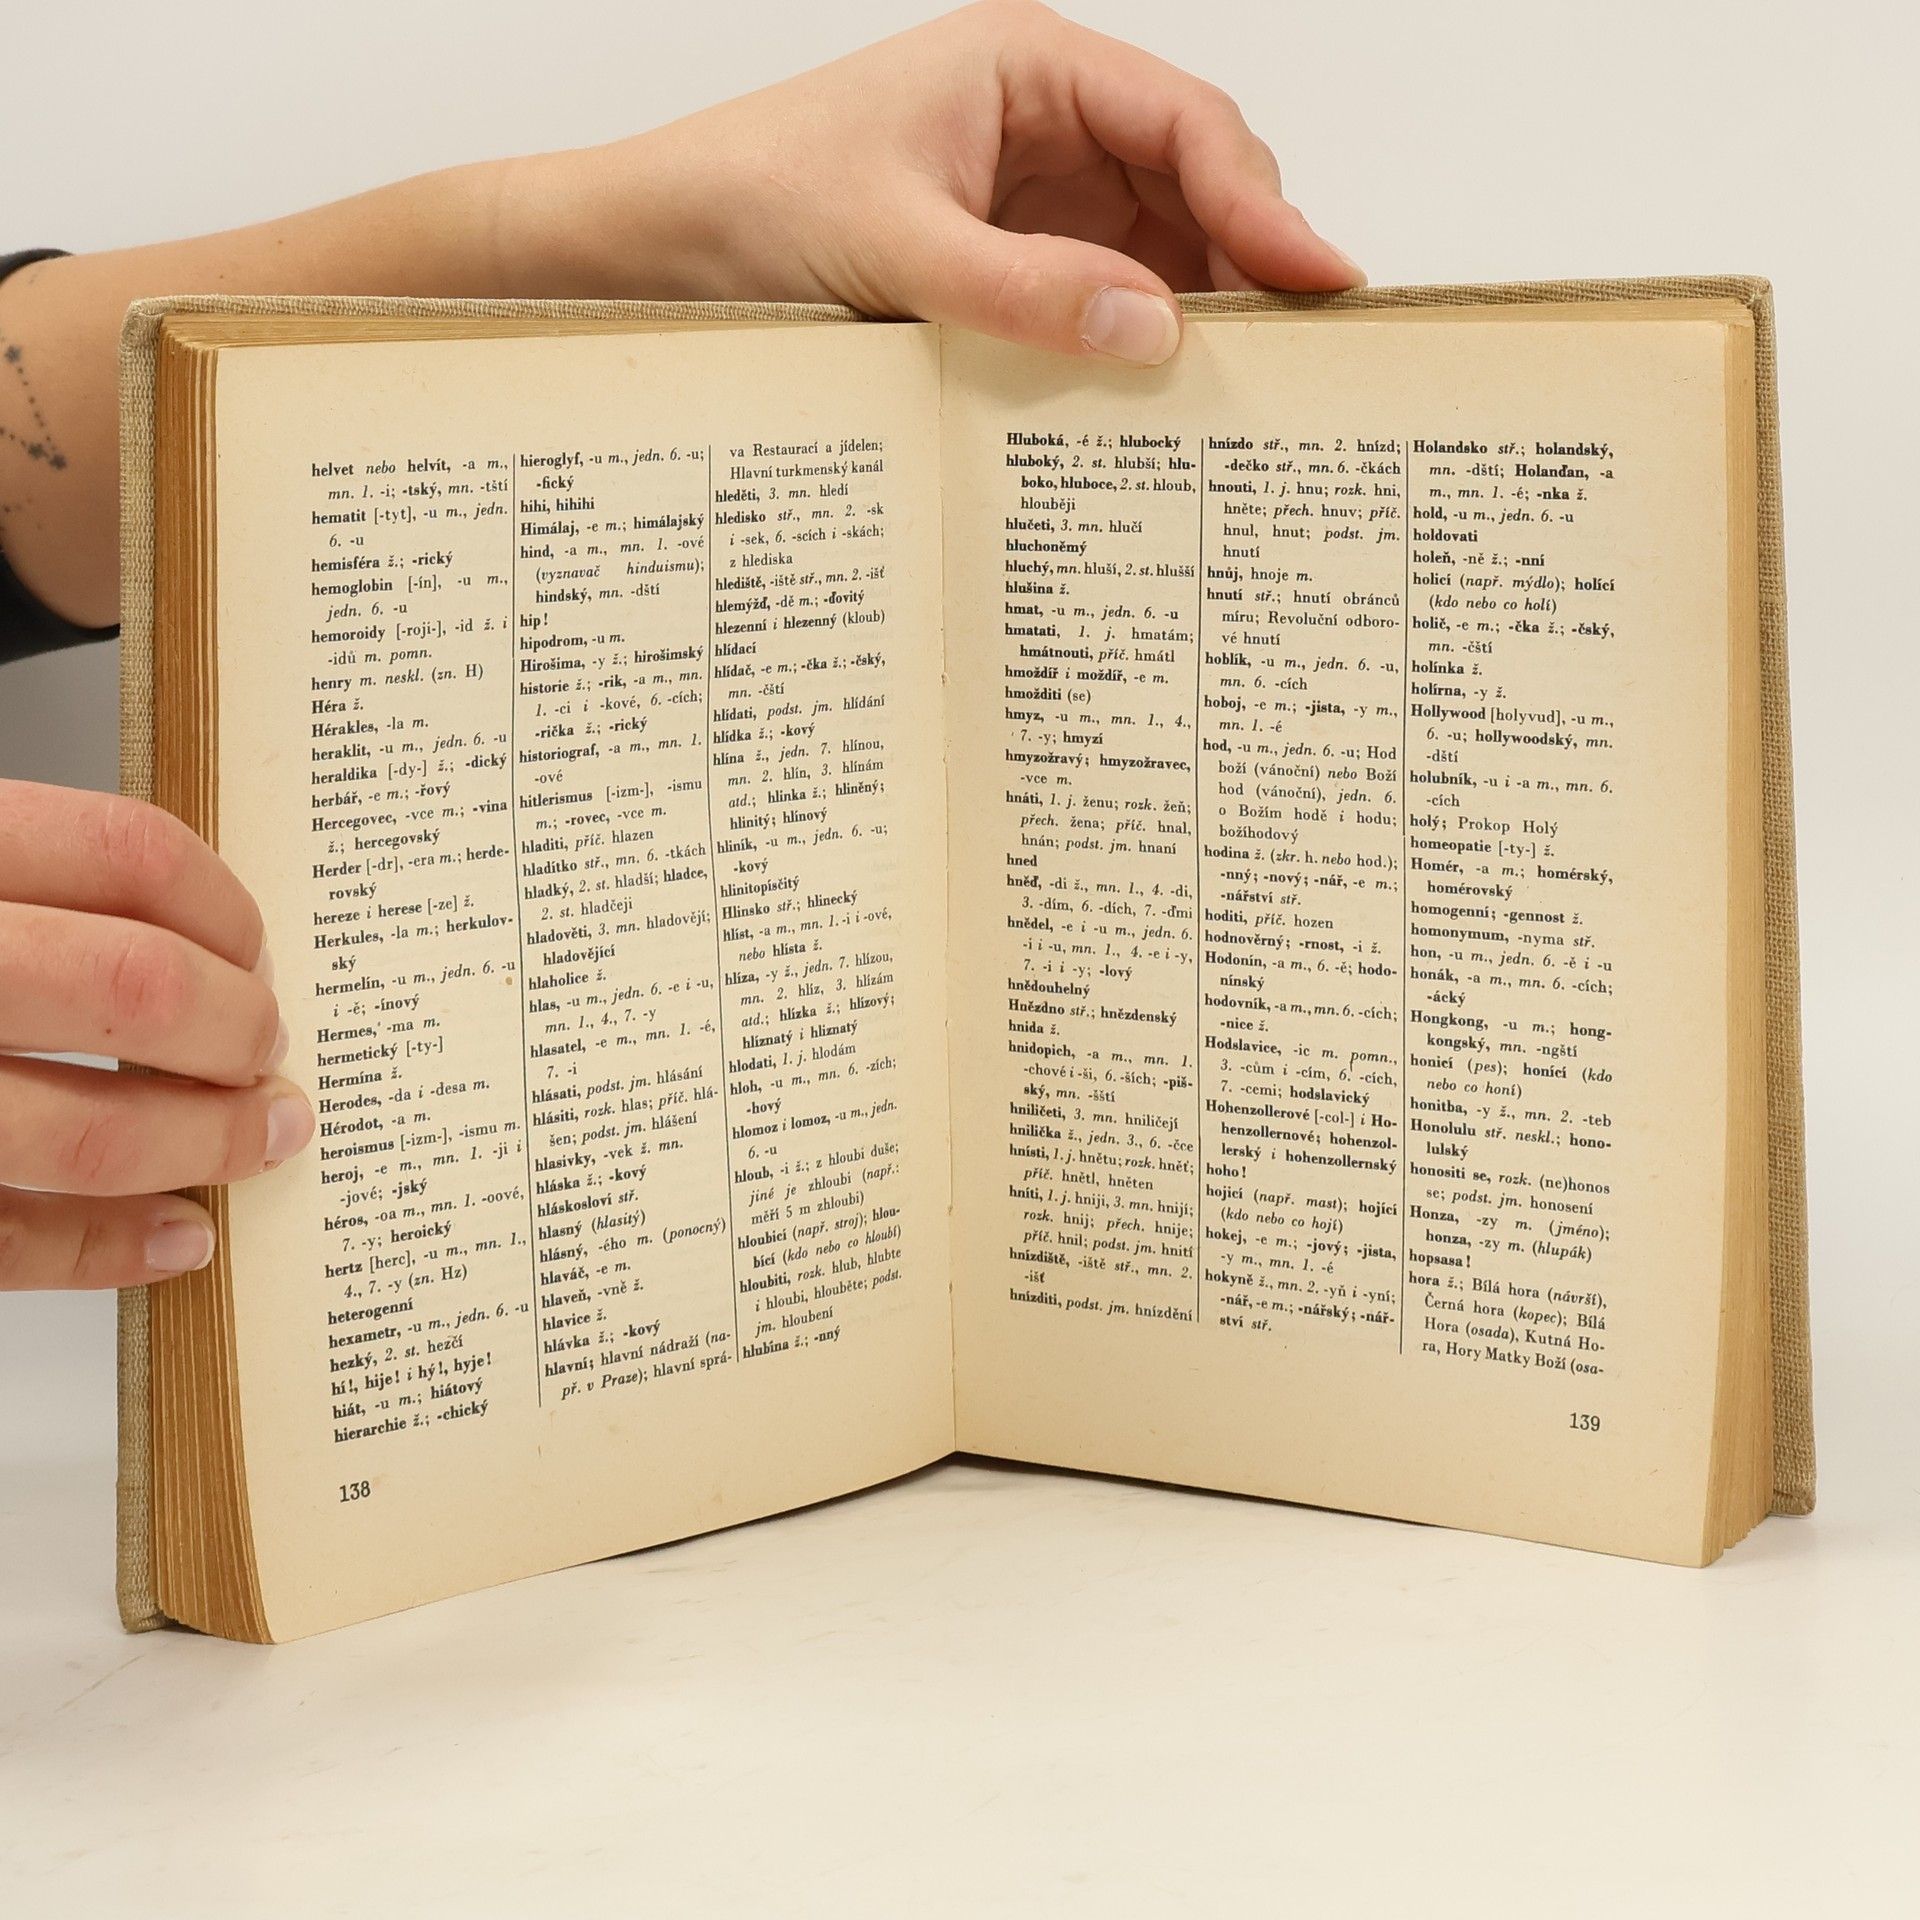 helvet nebo helvít, -a m.,
mn. 1. -i; -tský, mn. -tští
hematit [-tyt], -u m., jedn.
6. -u
hemisféra ž.; -rický
hemoglobin [-ín], -u m.,
jedn. 6. -u
hemoroidy [-roji-], -id ž. i
-idů m. pomn.
henry m. neskl. (zn. H)
Héra ž.
Hérakles, -la m.
heraklit, -u m., jedn. 6. -u
heraldika [-dy-] ž.; -dický
herbář, -e m.; -řový
Hercegovec, -vce m.; -vina
ž.; hercegovský
Herder [-dr], -era m.; herde-
rovský
hereze i herese [-ze] ž.
Herkules, -la m.; herkulov-
ský
hermelín, -u m., jedn. 6. -u
i -ě; -ínový
Hermes, -ma m.
hermetický [-ty-]
Hermína ž.
Herodes, -da i -desa m.
Hérodot, -a m.
heroismus [-izm-], -ismu m.
heroj, -e m., mn. 1. -ji i
-jové; -jský
héros, -oa m., mn. 1. -oové,
7. -y; heroický
hertz [herc], -u m., mn. 1.,
4., 7. -y (zn. Hz)
heterogenní
hexametr, -u m., jedn. 6. -u
hezký, 2. st. hezčí
hí!, hije! i hý!, hyje!
hiát, -u m.; hiátový
hierarchie ž.; -chický
hieroglyf, -u m., jedn. 6. -u;
-fický
hihi, hihihi
Himálaj, -e m.; himálajský
hind, -a m., mn. 1. -ové
(vyznavač hinduismu);
hindský, mn. -dští
hip!
hipodrom, -u m.
Hirošima, -y ž.; hirošimský
historie ž.; -rik, -a m., mn.
1. -ci i -kové, 6. -cích;
-rička ž.; -rický
historiograf, -a m., mn. 1.
-ové
hitlerismus [-izm-], -ismu
m.; -rovec, -vce m.
hladiti, příč. hlazen
hladítko stř., mn. 6. -tkách
hladký, 2. st. hladší; hladce,
2. st. hladčeji
hladověti, 3. mn. hladovějí;
hladovějící
hlaholice ž.
hlas, -u m., jedn. 6. -e i -u,
mn. 1., 4., 7. -y
hlasatel, -e m., mn. 1. -é,
7. -i
hlásati, podst. jm. hlásání
hlásiti, rozk. hlas; příč. hlá-
šen; podst. jm. hlášení
hlasivky, -vek ž. mn.
hláska ž.; -kový
hláskosloví stř.
hlasný (hlasitý)
hlásný, -ého m. (ponocný)
hlaváč, -e m.
hlaveň, -vně ž.
hlavice ž.
hlávka ž.; -kový
hlavní; hlavní nádraží (na-
př. v Praze); hlavní sprá-
va Restaurací a jídelen;
Hlavní turkmenský kanál
hleděti, 3. mn. hledí
hledisko stř., mn. 2. -sk
i -sek, 6. -scích i -skách;
z hlediska
hlediště, -iště stř., mn. 2. -išť
hlemýžď, -dě m.; -ďovitý
hlezenní i hlezenný (kloub)
hlídací
hlídač, -e m.; -čka ž.; -čský,
mn. -čští
hlídati, podst. jm. hlídání
hlídka ž.; -kový
hlína ž., jedn. 7. hlínou,
mn. 2. hlín, 3. hlínám
atd.; hlinka ž.; hliněný;
hlinitý; hlínový
hliník, -u m., jedn. 6. -u;
-kový
hlinitopísčitý
Hlinsko stř.; hlinecký
hlíst, -a m., mn. 1. -i i -ové,
nebo hlísta ž.
hlíza, -y ž., jedn. 7. hlízou,
mn. 2. hlíz, 3. hlízám
atd.; hlízka ž.; hlízový;
hlíznatý i hliznatý
hlodati, 1. j. hlodám
hloh, -u m., mn. 6. -zích;
-hový
hlomoz i lomoz, -u m., jedn.
6. -u
hloub, -i ž.; z hloubi duše;
jiné je zhloubi (např.:
měří 5 m zhloubi)
hloubicí (např. stroj); hlou-
bící (kdo nebo co hloubí)
hloubiti, rozk. hlub, hlubte
i hloubi, hlouběte; podst.
jm. hloubení
hlubina ž.; -nný
138
Hluboká, -é ž.; hlubocký
hluboký, 2. st. hlubší; hlu-
boko, hluboce, 2. st. hloub,
hlouběji
hlučeti, 3. mn. hlučí
hluchoněmý
hluchý, mn. hluší, 2. st. hlušší
hlušina ž.
hmat, -u m., jedn. 6. -u
hmatati, 1. j. hmatám;
hmátnouti, příč. hmátl
hmoždíř i moždíř, -e m.
hmožditi (se)
hmyz, -u m., mn. 1., 4.,
7. -y; hmyzí
hmyzožravý; hmyzožravec,
-vce m.
hnáti, 1. j. ženu; rozk. žeň;
přech. žena; příč. hnal,
hnán; podst. jm. hnaní
hned
hněď, -di ž., mn. 1., 4. -di,
3. -dím, 6. -dích, 7. -ďmi
hnědel, -e i -u m., jedn. 6.
-i i -u, mn. 1., 4. -e i -y,
7. -i i -y; -lový
hnědouhelný
Hnězdno stř.; hnězdenský
hnida ž.
hnidopich, -a m., mn. 1.
-chové i -ši, 6. -ších; -piš-
ský, mn. -šští
hniličeti, 3. mn. hniličejí
hnilička ž., jedn. 3., 6. -čce
hnísti, 1. j. hnětu; rozk. hněť;
příč. hnětl, hněten
hníti, 1. j. hniji, 3. mn. hnijí;
rozk. hnij; přech. hnije;
příč. hnil; podst. jm. hnití
hnízdiště, -iště stř., mn. 2.
-išť
hnízditi, podst. jm. hnízdění
hnízdo stř., mn. 2. hnízd;
-dečko stř., mn. 6. -čkách
hnouti, 1. j. hnu; rozk. hni,
hněte; přech. hnuv; příč.
hnul, hnut; podst. jm.
hnutí
hnůj, hnoje m.
hnutí stř.; hnutí obránců
míru; Revoluční odboro-
vé hnutí
hoblík, -u m., jedn. 6. -u,
mn. 6. -cích
hoboj, -e m.; -jista, -y m.,
mn. 1. -é
hod, -u m., jedn. 6. -u; Hod
boží (vánoční) nebo Boží
hod (vánoční), jedn. 6.
o Božím hodě i hodu;
božíhodový
hodina ž. (zkr. h. nebo hod.);
-nný; -nový; -nář, -e m.;
-nářství stř.
hoditi, příč. hozen
hodnověrný; -rnost, -i ž.
Hodonín, -a m., 6. -ě; hodo-
nínský
hodovník, -a m., mn. 6. -cích;
-nice ž.
Hodslavice, -ic m. pomn.,
3. -cům i -cím, 6. -cích,
7. -cemi; hodslavický
Hohenzollerové [-col-] i Ho-
henzollernové; hohenzol-
lerský i hohenzollernský
hoho!
hojicí (např. mast); hojící
(kdo nebo co hojí)
hokej, -e m.; -jový; -jista,
-y m., mn. 1. -é
hokyně ž., mn. 2. -yň i -yní;
-nář, -e m.; -nářský; -nář-
ství stř.
Holandsko stř.; holandský,
mn. -dští; Holanďan, -a
m., mn. 1. -é; -nka ž.
hold, -u m., jedn. 6. -u
holdovati
holeň, -ně ž.; -nní
holicí (např. mýdlo); holící
(kdo nebo co holí)
holič, -e m.; -čka ž.; -čský,
mn. -čští
holínka ž.
holírna, -y ž.
Hollywood [holyvud], -u m.,
6. -u; hollywoodský, mn.
-dští
holubník, -u i -a m., mn. 6.
-cích
holý; Prokop Holý
homeopatie [-ty-] ž.
Homér, -a m.; homérský,
homérovský
homogenní; -gennost ž.
homonymum, -nyma stř.
hon, -u m., jedn. 6. -ě i -u
honák, -a m., mn. 6. -cích;
-ácký
Hongkong, -u m.; hong-
kongský, mn. -ngští
honicí (pes); honící (kdo
nebo co honí)
honitba, -y ž., mn. 2. -teb
Honolulu stř. neskl.; hono-
lulský
honositi se, rozk. (ne)honos
se; podst. jm. honosení
Honza, -zy m. (jméno);
honza, -zy m. (hlupák)
hopsasa!
hora ž.; Bílá hora (návrší),
Černá hora (kopec); Bílá
Hora (osada), Kutná Ho-
ra, Hory Matky Boží (osa-
139